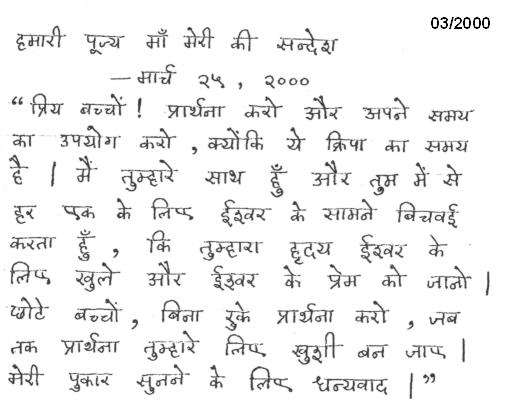 03/2000
हमारी पूज्य माँ मेरी की सन्देश
— मार्च २५, २०००
“प्रिय बच्चों! प्रार्थना करो और अपने समय
का उपयोग करो, क्योंकि ये क्रिपा का समय
है। मैं तुम्हारे साथ हूँ और तुम में से
हर एक के लिए ईश्वर के सामने बिचवई
करता हूँ, कि तुम्हारा हृदय ईश्वर के
लिए खुले और ईश्वर के प्रेम को जानो।
छोटे बच्चों, बिना रुके प्रार्थना करो, जब
तक प्रार्थना तुम्हारे लिए खुशी बन जाए।
मेरी पुकार सुनने के लिए धन्यवाद।”